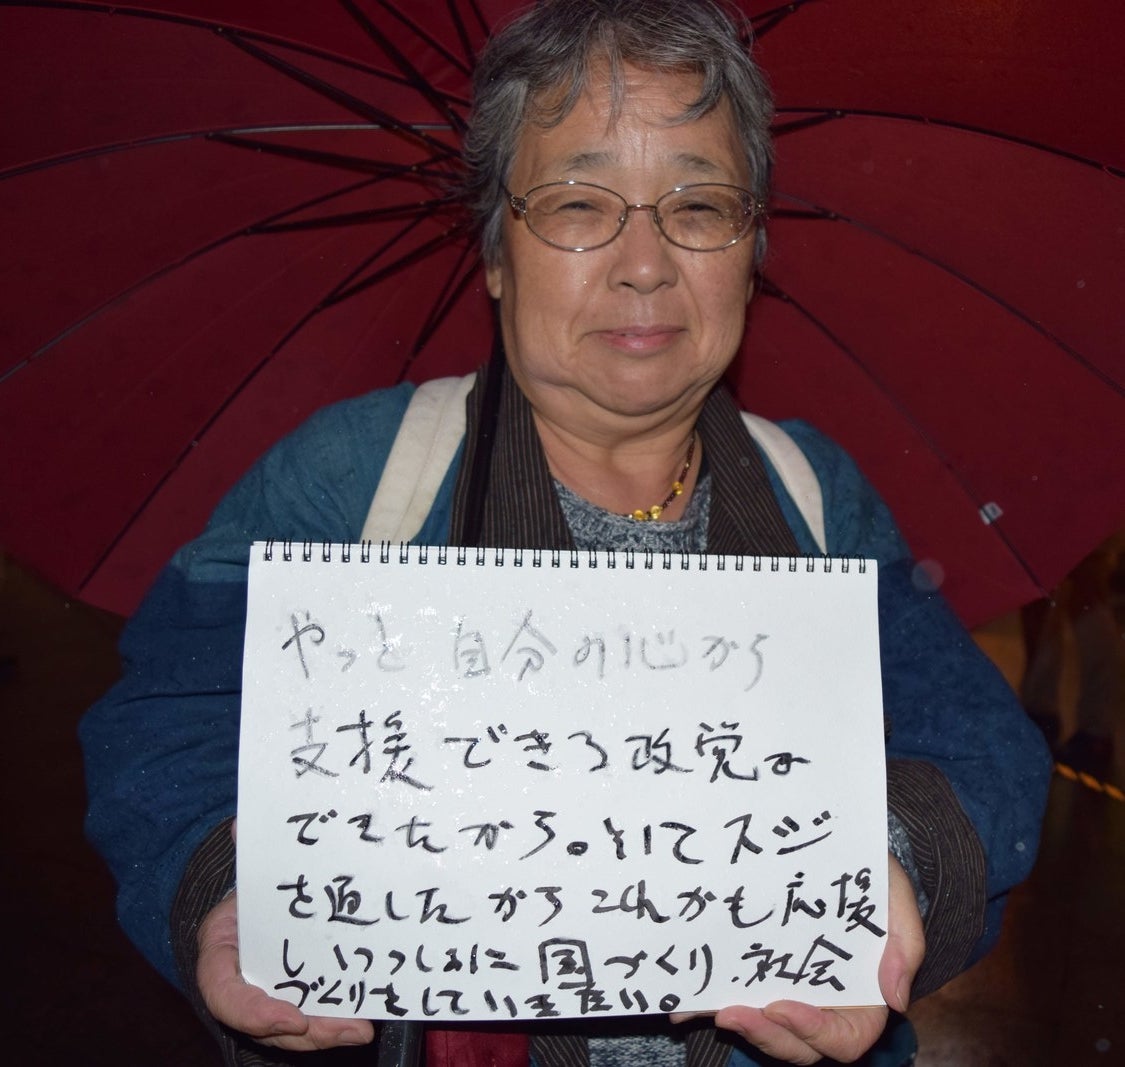 やっと自分の心から
支援できる政党が
できたから。そしてスジ
を通したから これからも応援
し、いっしょに国づくり、社会
づくりをしていきたい。